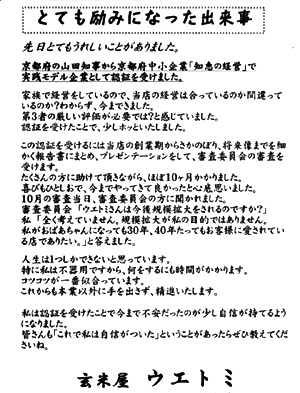 とても励みになった出来事
先日とてもうれしいことがありました。
京都府の山田知事から京都府中小企業「知恵の経営」で
実践モデル企業として認証を受けました。
家族で経営をしているので、当店の経営は合っているのか間違って
いるのか?わからず、今まできました。
第3者の厳しい評価が必要では?と感じていました。
認証を受けたことで、少しホッといたしました。
この認証を受けるには当店の創業期からさかのぼり、将来像までを細
かく報告書にまとめ、プレゼンテーションをして、審査委員会の審査を
受けます。
たくさんの方に助けて頂きながら、ほぼ10ヶ月かかりました。
喜びもひとしおで、今までやってきて良かったと心底思いました。
10月の審査当日、審査委員会の方に聞かれました。
審査委員会「ウエトミさんは今後規模拡大をされるのですか?」
私「全く考えていません。規模拡大が私の目的ではありません。
私がおばあちゃんになっても30年、40年たってもお客様に愛されてい
る店でありたい。」と答えました。
人生は1つしかできないと思っています。
特に私は不器用ですから、何をするにも時間がかかります。
コツコツが一番似合っています。
これからも本業以外に手を出さず、精進いたします。
私は認証を受けたことで今まで不安だったのが少し自信が持てるよう
になりました。
皆さんも「これで私は自信がついた」ということがあったらぜひ教えてくだ
さいね。
玄米屋 ウエトミ